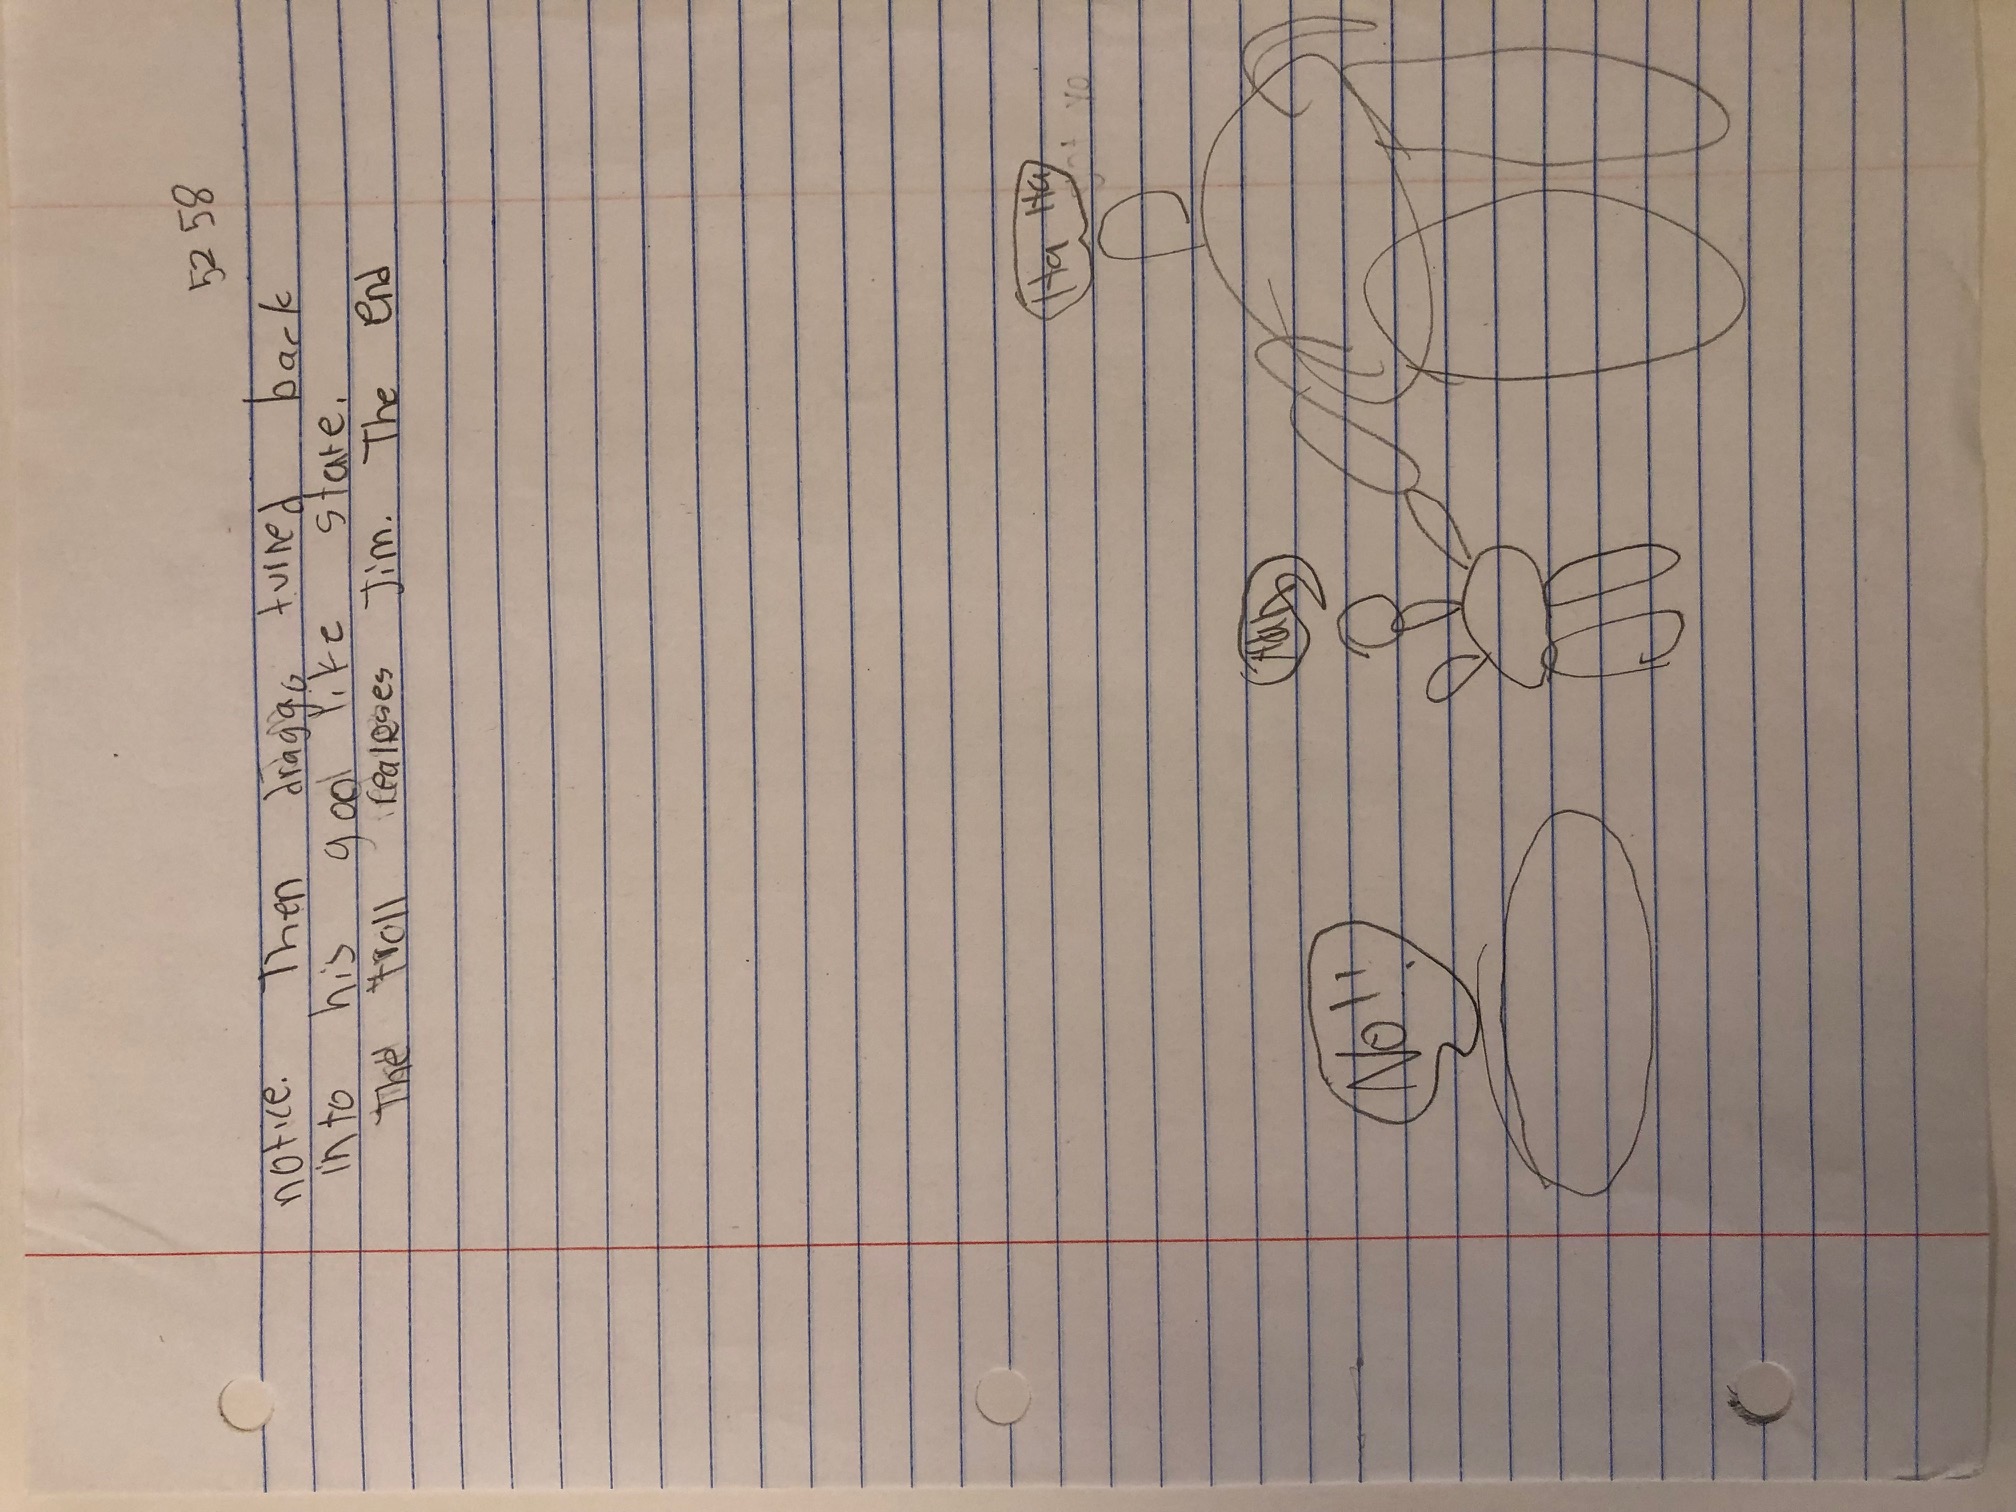 52 58
notice. Then draggo turned back
into his gool like state.
The troll realeses Jim. The end
Ha Ha
No!!